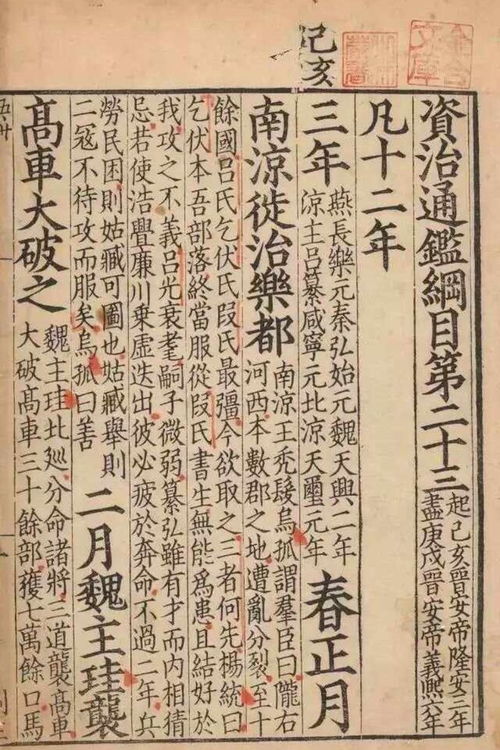 資治通鑑綱目第二十三 起己亥晉安帝隆安三年
盡庚戌晉安帝義熙六年
凡十二年
己亥
三年 燕長樂元秦弘始元魏天興二年
涼主呂纂咸寧元北涼天璽元年
春正月
南涼徙治樂都 南涼王禿髮烏孤謂羣臣曰隴右
河西本數郡之地遭亂分裂至十
餘國呂氏乞伏氏段氏最彊今欲取之三者何先楊統曰
乞伏本吾部落終當服從段氏書生無能為患且結好於
我攻之不義呂光衰耄嗣子微弱纂弘雖有才而內相猜
忌若使浩亹廉川乗虛迭出彼必疲於奔命不過二年兵
勞民困則姑臧可圖也姑臧舉則
二冦不待攻而服矣烏孤曰善
二月魏主珪襲
髙車大破之 魏主珪北廵分命諸將三道襲髙車
大破髙車三十餘部獲七萬餘口馬
文庫